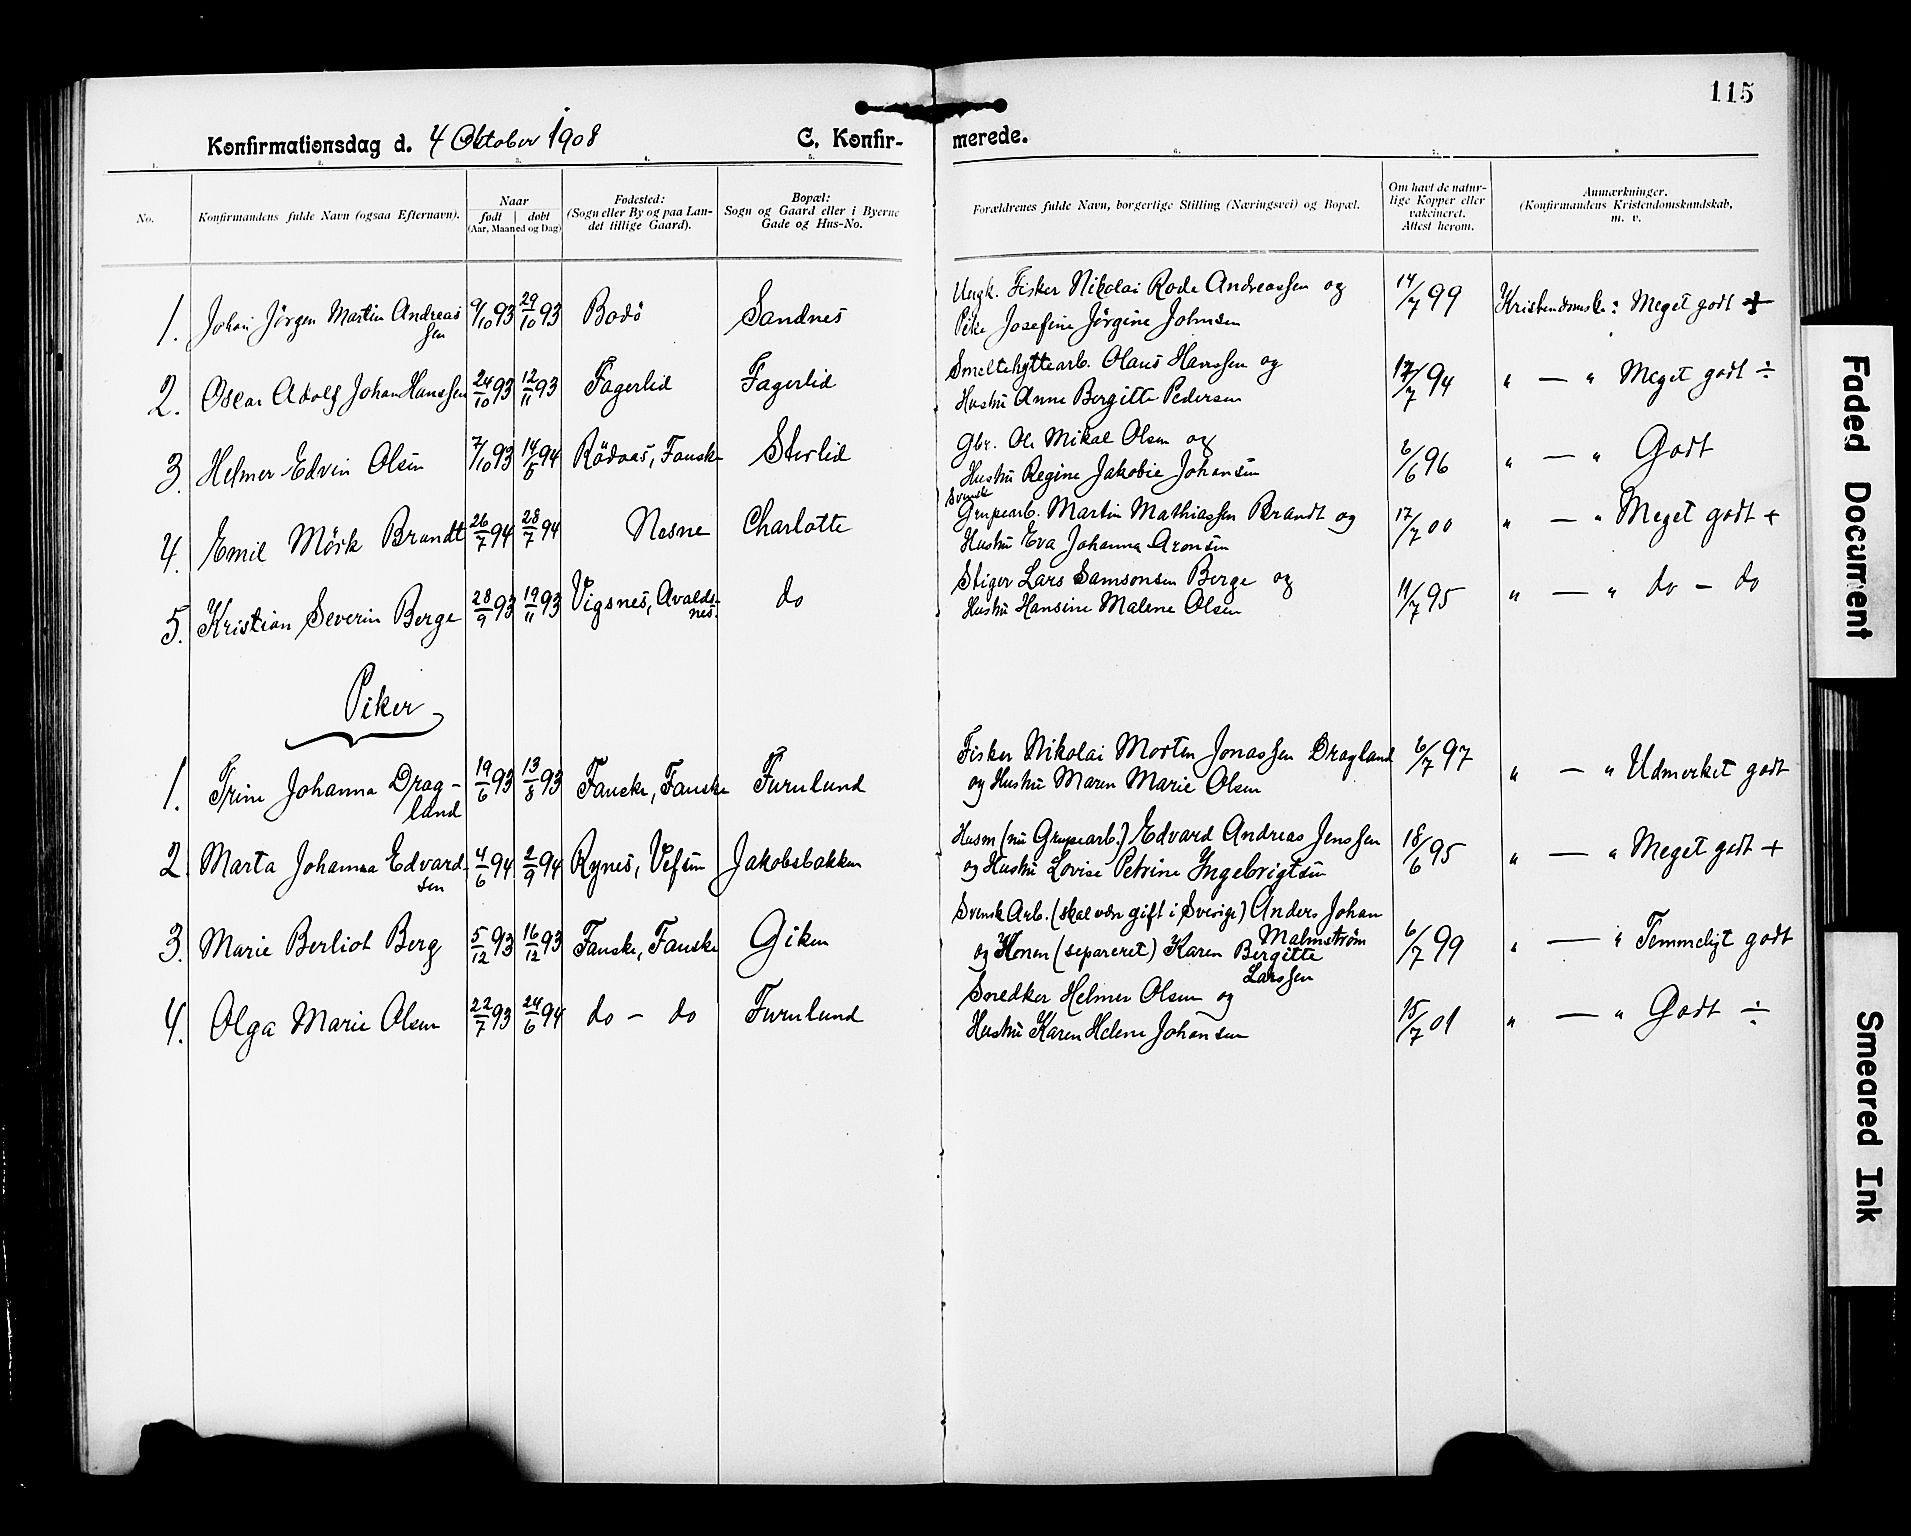 115
Konfirmationsdag d. 4 Oktober 1908 C. Konfir- merede.
1. 2. 3. 4. 5. 6. 7. 8.
No.
Konfirmandens fulde Navn (ogsaa Efternavn).
Naar
født | døbt
(Aar, Maaned og Dag)
Fødested:
(Sogn eller By og paa Lan-
det tillige Gaard).
Bopæl:
Sogn og Gaard eller i Byerne
Gade og Hus-No.
Forældrenes fulde Navn, borgerlige Stilling (Næringsvei) og Bopæl.
Om havt de natur-
lige Kopper eller
vakcineret.
Attest herom.
Anmærkninger.
(Konfirmandens Kristendomskundskab,
m. v.
1. Johan Jörgen Martin Andreas
sen 9/10 93 29/10 93 Bodö Sandnes
Ungk. Fisker Nikolai Rode Andreassen og
Pike Josefine Jörgine Johnsen
14/7 99 Kristendomsk: Meget godt +
2. Oscar Adolf Johan Hanssen 24/10 93 12/11 93 Fagerlid Fagerlid
Smeltehyttearb. Olaus Hanssen og
Hustru Anne Bergitte Pedersen
17/7 94 " — " Meget godt ÷
3. Helmer Edvin Olsen 7/10 93 14/5 94 Rödaas, Fauske Storlid
Gbr. Ole Mikal Olsen og
Hustru Regine Jakobie Johansen
6/6 96 " — " Godt
4. Emil Mörk Brandt 26/7 94 28/7 94 Nesne Charlotte
Svensk
Grupearb. Martin Mathiassen Brandt og
Hustru Eva Johanna Aronsen
17/7 00 " — " Meget godt +
5. Kristian Severin Berge 28/9 93 19/11 93 Vigsnes, Avalds-
nes. do
Stiger Lars Samsonsen Berge og
Hustru Hansine Malene Olsen
11/7 95 " — " do — do
Piker
1. Trine Johanna Drag-
land 19/6 93 13/8 93 Fauske, Fauske Furulund
Fisker Nikolai Morten Jonassen Dragland
og Hustru Maren Marie Olsen
6/7 97 " — " Udmerket godt
2. Marta Johanna Edvard-
sen 4/6 94 2/9 94 Rynes, Vefsen Jakobsbakken
Husm (nu Grupearb.) Edvard Andreas Jenssen
og Hustru Lovise Petrine Ingebrigtsen
18/6 95 " — " Meget godt +
3. Marie Berliot Berg 5/12 93 16/12 93 Fauske, Fauske Giken
Svensk Arb. (skal være gift i Sverige) Anders Johan
Malmström
og Konen (separeret) Karen Bergitte
Larssen
6/7 99 " — " Temmeligt godt
4. Olga Marie Olsen 22/7 93 24/6 94 do — do Furulund
Snedker Helmer Olsen og
Hustru Karen Helene Johansen
15/7 01 " — " Godt ÷
Faded Document
Smeared Ink